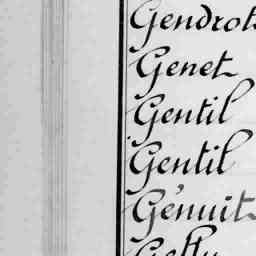 Gendrots
Genet
Gentil
Gentil
Génuit